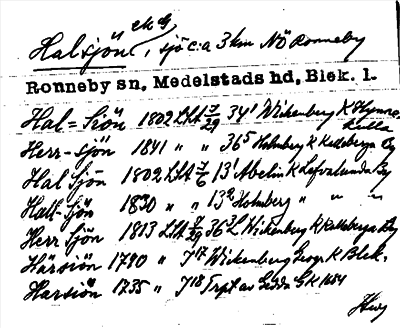 Halsjön, sjö c:a 3 km NÖ Ronneby
Ronneby sn, Medelstads hd, Blek. l.
Hal=Siön 1802 LSA 7/29 34¹ Wickenberg K
Herr-sjön 1841 " " 36⁵ Holmberg K Kalleberga By
Hal Sjön 1802 LSA 7/6 13¹ Abelin K By
Hall-Sjön 1830 " " 13² Holmberg " " "
Herr Sjön 1813 LSA 36³ Wickenberg K Kalleberga By
Härsiön 1790 " 7¹⁷ Wickenberg Geogr K Blek.
Harsiön 1735 " 7¹⁸ Trpt av Gedda GK 1684